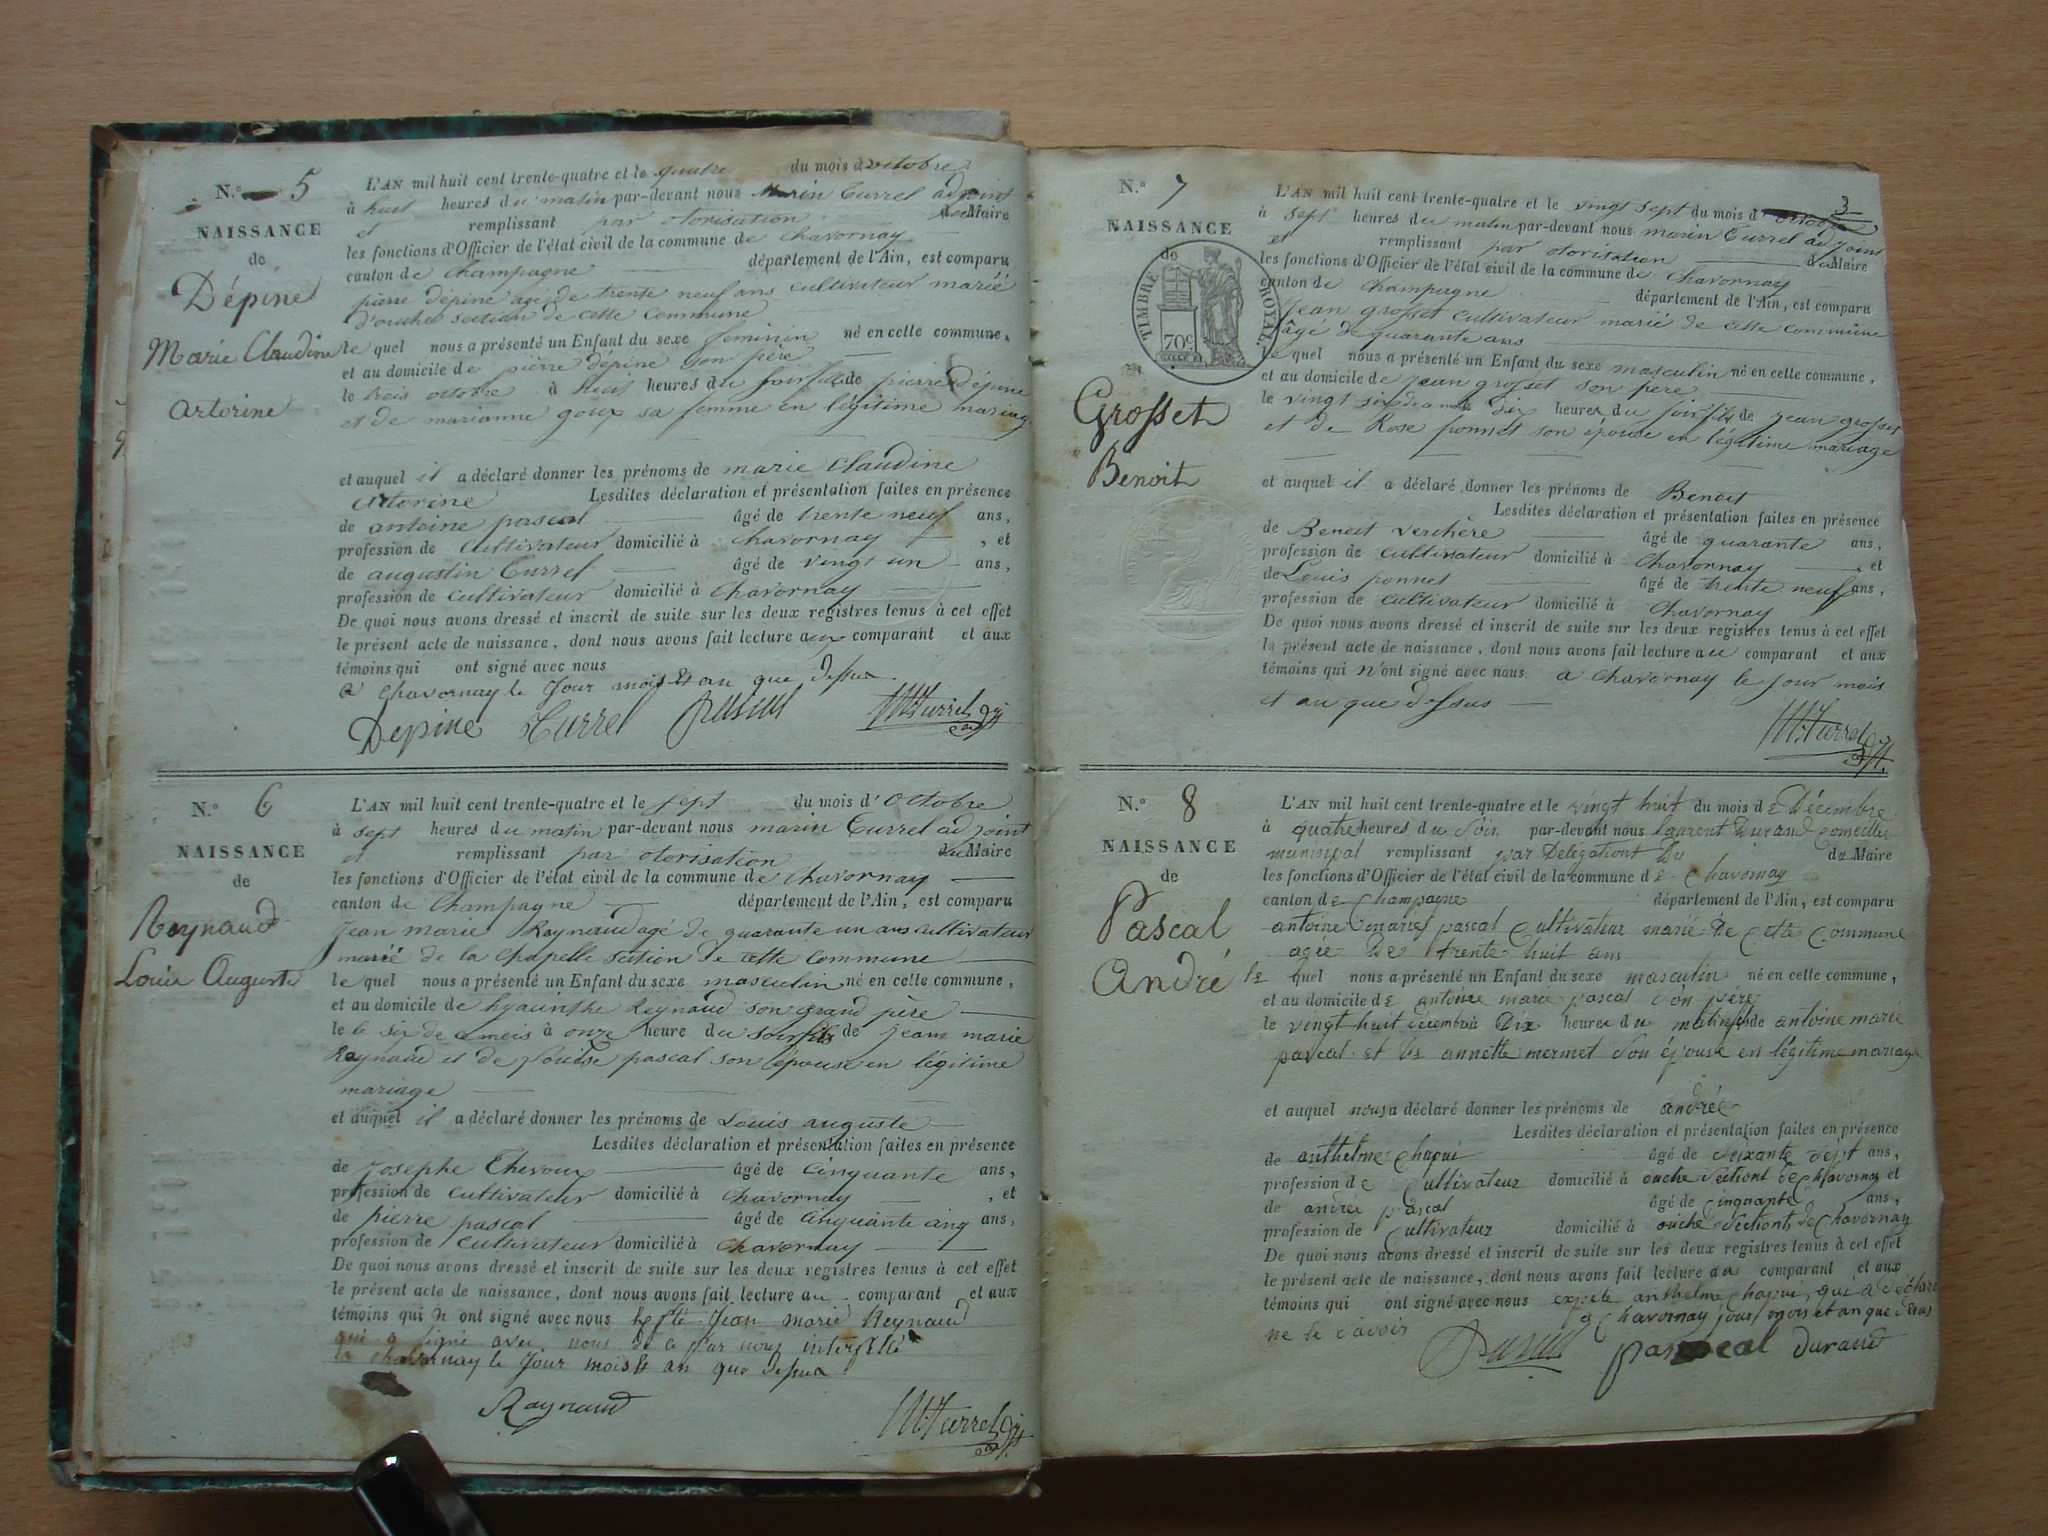 N.º 5
NAISSANCE
de
Dépine
Marie Claudine
artorine
L'AN mil huit cent trente-quatre et le quatre du mois d'octobre
à huit heures du matin par-devant nous Marin Turrel adjoint
et remplissant par otorisation du Maire
les fonctions d'Officier de l'état civil de la commune de Chavornay
canton de Champagne département de l'Ain, est comparu
pierre dépine agé de trente neuf ans cultivateur marié
d'ouche section de cette commune
le quel nous a présenté un Enfant du sexe feminin né en cette commune,
et au domicile de pierre dépine son père
le trois octobre à huit heures du soir fille de pierre dépine
et de marianne goux sa femme en légitime mariage
et auquel il a déclaré donner les prénoms de marie Claudine
artorine Lesdites déclaration et présentation faites en présence
de antoine pascal âgé de trente neuf ans,
profession de cultivateur domicilié à Chavornay , et
de augustin Turrel âgé de vingt un ans,
profession de cultivateur domicilié à Chavornay
De quoi nous avons dressé et inscrit de suite sur les deux registres tenus à cet effet
le présent acte de naissance, dont nous avons fait lecture aux comparant et aux
témoins qui ont signé avec nous
a Chavornay le jour mois et an que dessus.
Depine Turrel pascal M Turrel adjt
N.º 6
NAISSANCE
de
Reynaud
Louis Auguste
L'AN mil huit cent trente-quatre et le sept du mois d'Octobre
à sept heures du matin par-devant nous marin Turrel adjoint
et remplissant par otorisation du Maire
les fonctions d'Officier de l'état civil de la commune de Chavornay
canton de Champagne département de l'Ain, est comparu
Jean marie Reynaud agé de quarante un ans cultivateur
marié de la Chapelle section de cette commune
le quel nous a présenté un Enfant du sexe masculin né en cette commune,
et au domicile de hyacinthe Reynaud son grand père
le 6 six de ce mois à onze heure du soir fils de jean marie
Reynaud et de Louise pascal son épouse en légitime
mariage
et auquel il a déclaré donner les prénoms de Louis auguste
Lesdites déclaration et présentation faites en présence
de Josephe Thevoux âgé de cinquante ans,
profession de cultivateur domicilié à Chavornay , et
de pierre pascal âgé de cinquante cinq ans,
profession de cultivateur domicilié à Chavornay
De quoi nous avons dressé et inscrit de suite sur les deux registres tenus à cet effet
le présent acte de naissance, dont nous avons fait lecture au comparant et aux
témoins qui n ont signé avec nous Jean marie Reynaud
qui a signé avec nous de ce par nous
Chavornay le jour mois et an que dessus
Reynaud M Turrel adjt
3
N.º 7
NAISSANCE
de
TIMBRE ROYAL.
70c
Grosset
Benoit
L'AN mil huit cent trente-quatre et le vingt sept du mois d'octobre
à sept heures du matin par-devant nous marin Turrel adjoint
et remplissant par otorisation du Maire
les fonctions d'Officier de l'état civil de la commune de Chavornay
canton de Champagne département de l'Ain, est comparu
Jean grosset cultivateur marié de cette commune
âgé de quarante ans
le quel nous a présenté un Enfant du sexe masculin né en cette commune,
et au domicile de jean grosset son père
le vingt six de ce mois dix heures du soir fils de jean grosset
et de Rose ponnet son épouse en légitime mariage
et auquel il a déclaré donner les prénoms de Benoit
Lesdites déclaration et présentation faites en présence
de Benoit verchère âgé de quarante ans,
profession de cultivateur domicilié à Chavornay , et
de Louis ponnet âgé de trente neuf ans,
profession de cultivateur domicilié à Chavornay
De quoi nous avons dressé et inscrit de suite sur les deux registres tenus à cet effet
le présent acte de naissance, dont nous avons fait lecture au comparant et aux
témoins qui n'ont signé avec nous a Chavornay le jour mois
et an que dessus
M. Turrel adjt.
N.º 8
NAISSANCE
de
Pascal
André
L'AN mil huit cent trente-quatre et le vingt huit du mois de Décembre
à quatre heures du soir par-devant nous laurent Durand conseiller
municipal remplissant par Délégationt du de Maire
les fonctions d'Officier de l'état civil de la commune de Chavornay
canton de Champagne département de l'Ain, est comparu
antoine marie pascal cultivateur marié de cette commune
agée de trente huit ans
le quel nous a présenté un Enfant du sexe masculin né en cette commune,
et au domicile de antoine marie pascal son père
le vingt huit décembre à Dix heures du matin fils de antoine marie
pascal et de annette mermet son épouse en légitime mariage
et auquel nous a déclaré donner les prénoms de andré
Lesdites déclaration et présentation faites en présence
de anthelme Chapui âgé de soixante sept ans,
profession de cultivateur domicilié à ouche sectiont de Chavornay et
de andré pascal âgé de cinquante ans,
profession de cultivateur domicilié à ouche sectiont de Chavornay
De quoi nous avons dressé et inscrit de suite sur les deux registres tenus à cet effet
le présent acte de naissance, dont nous avons fait lecture au comparant et aux
témoins qui ont signé avec nous anthelme Chapui qui a déclaré
ne le savoir a Chavornay jour mois et an que dessus
pascal durand